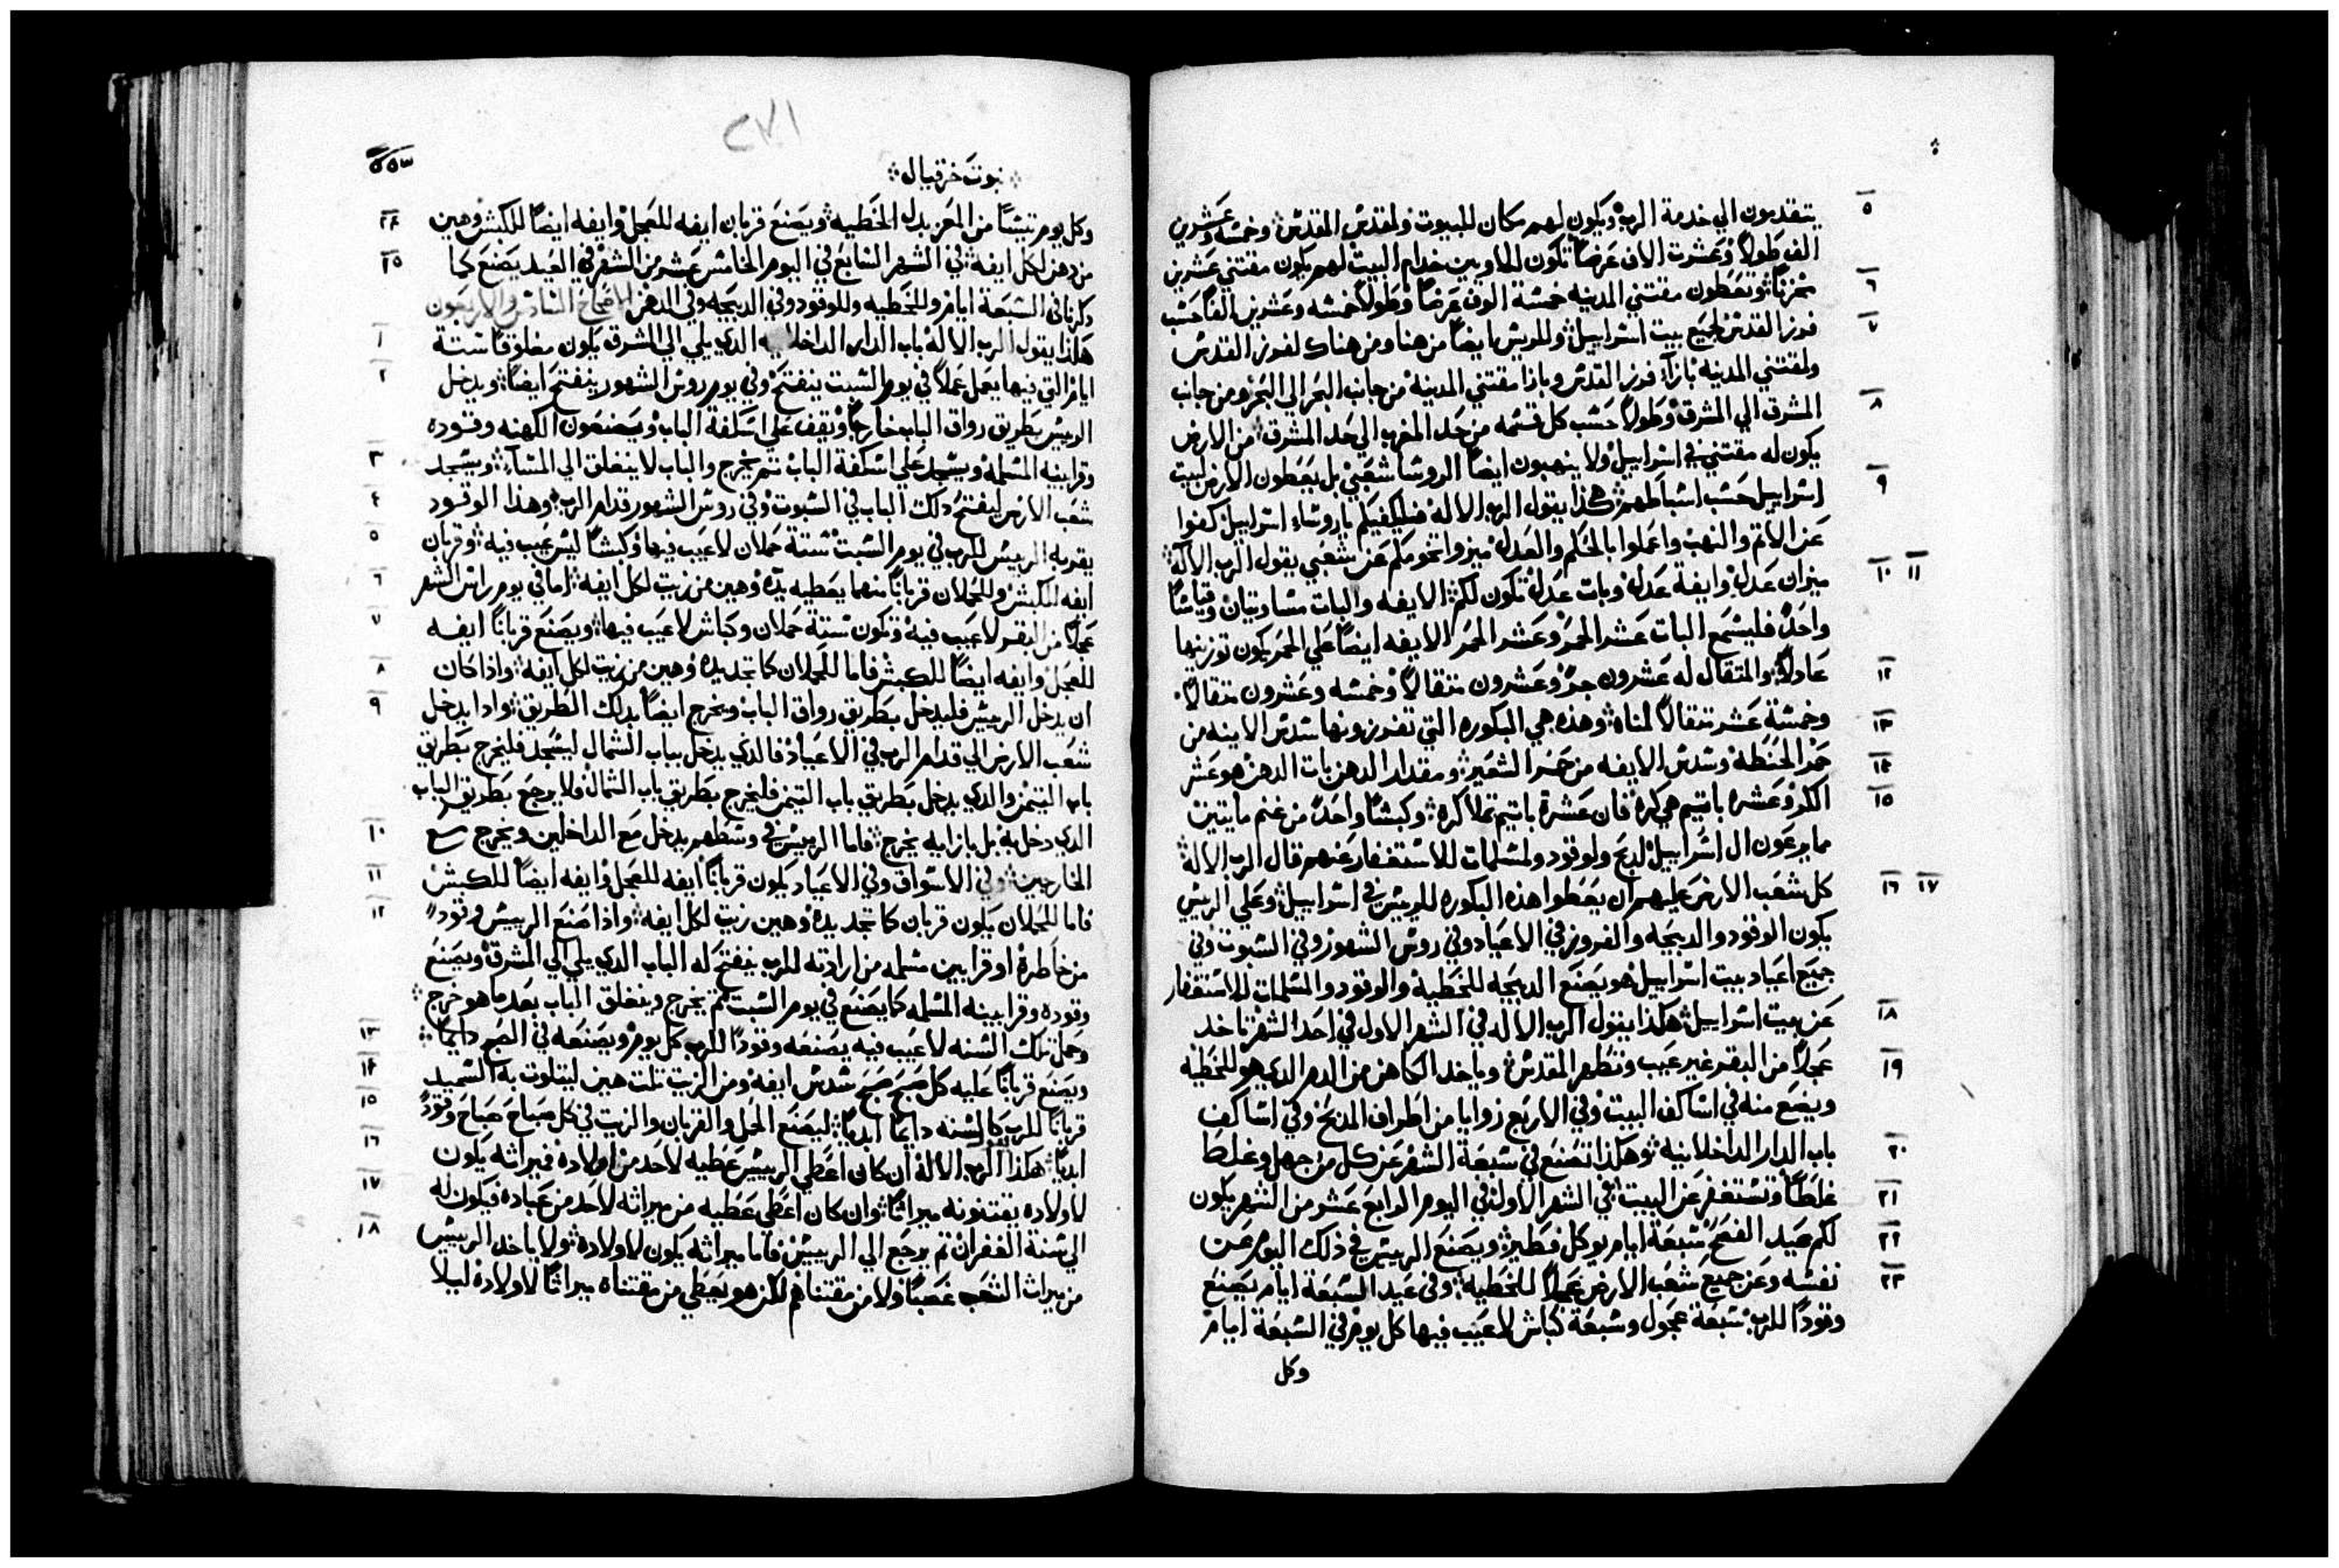 ٥ يتقدمون الي خدمة الرب ويكون لهم مكان للبيوت ولمقدس المقدس وخمسه وعشرين
الف طولاً وعشرت الاف عرضاً تكون للاويين خدام البيت لهم يكون مقتني عشرين
٦ مخزناً وتعطون مقتني المدينه خمسة الوف عرضاً وطولاً خمسه وعشرين الفاً حسب
٧ فرز القدس لجميع بيت اسراييل وللريس ايضاً من هنا ومن هناك لفرز القدس
ولمقتني المدينه بازآء فرز القدس وبازا مقتني المدينه من جانب البحر الي البحر ومن جانب
٨ المشرق الي المشرق وطولاً حسب كل قسمه من حد المغرب الي حد المشرق من الارض
يكون له مقتني في اسراييل ولا ينهبون ايضاً الروسا شعبي بل يعطون الارض لبيت
٩ اسراييل حسب اسباطهم هكذا يقول الرب الاله فليكفيكم ياروساء اسراييل كفوا
عن الاثم والنهب واعملوا بالحكم والعدل ميزوا تخومكم عن شعبي يقول الرب الاله
١٠ ١١ ميزان عدل وايفة عدل وبات عدل تكون لكم الايفه والبات متساويتان وقياسًا
واحدً فليسمع البات عشر الحمر وعشر الحمر الايفه ايضاً علي الحمر يكون توزينها
١٢ عادلاً والمثقال له عشرون جرً وعشرون مثقالاً وخمسه وعشرون مثقالاً
١٣ وخمسة عشر مثقالاً لمناه وهذه هي البكوره التي تفرزونها سدس الايفه من
١٤ حمر الحنطه وسدس الايفه من حمر الشعير ومقدار الدهن بات الدهن هو عشر
١٥ الكر وعشره باتيم هي كره فان عشرة باتيم تملا كره وكبشاً واحدً من غنم مايتين
مما يرعون ال اسراييل لدبح ولوقود ولمسلمات للاستغفار عنهم قال الرب الاله
١٦ ١٧ كل شعب الارض عليهم ان يعطوا هذه البكوره للريس في اسراييل وعلي الريس
يكون الوقود والدبيحه والفروز في الاعياد وفي روس الشهور وفي السبوت وفي
جميع اعياد بيت اسراييل هو يصنع الدبيحه للخطيه والوقود والمسلمات للاستغفار
١٨ عن بيت اسراييل هكذا يقول الرب الاله في الشهر الاول في احد الشهر تاخد
١٩ عجلاً من البقر غير عيب وتطهر المقدس وياخد الكاهن من الدم الدي هو للخطيه
ويضع منه في اساكف البيت وفي الاربع زوايا من اطراف المدبح وفي اساكف
٢٠ باب الدار الداخلانيه وهكذا تصنع في سبعة الشهر عن كل من جهل وغلط
٢١ غلطاً وتستغفر عن البيت في الشهر الاول في اليوم الرابع عشر من الشهر يكون
٢٢ لكم عيد الفصح سبعة ايام يوكل فطير ويصنع الرييس في ذلك اليوم عن
٢٣ نفسه وعن جميع شعب الارض عجلاً للخطيه وفي عيد السبعة ايام يصنع
وقودًا للرب سبعة عجول وسبعة كباش لا عيب فيها كل يوم في السبعة ايام
وكل
٢٧١
نبوت حزقيال
٥٥٣
٢٤ وكل يوم تيساً من المعز بدل الخطيه ويصنع قربان ايفه للعجل وايفه ايضاً للكبش وهين
٢٥ من دهن لكل ايفه في الشهر السابع في اليوم الخامس عشر من الشهر في العيد يصنع كما
ذكرنا في السبعة ايام وللخطيه وللوقود وفي الدبيحه وفي الدهن الاصحاح السادس والاربعون
١ هكذا يقول الرب الاله باب الدار الداخلانيه الدي يلي الي الشرق يكون مغلوقاً ستة
٢ ايام التي فيها يعمل عملاً في يوم السبت ينفتح وفي يوم روس الشهور ينفتح ايضاً ويدخل
الرييس بطريق رواق الباب خارجاً ويقف علي اسكفة الباب ويصنعون الكهنه وقوده
٣ وقرابينه المسلمه ويسجد علي اسكفة الباب ثم يخرج والباب لا ينغلق الي المساء ويسجد
٤ شعب الارض لمفتح دلك الباب في السبوت وفي روس الشهور قدام الرب وهذا الوقود
٥ يقربه الرييس للرب في يوم السبت ستة حملان لا عيب فيها وكبشاً ليس عيب فيه وقربان
٦ ايفه للكبش وللحملان قرباناً منهما يعطيه يده وهين من زيت لكل ايفه اما في يوم راس الشهر
٧ عجلاً من البقر لا عيب فيه وتكون ستة حملان وكباش لا عيب فيها ويصنع قرباناً ايفه
٨ للعجل وايفه ايضاً للكبش فاما للحملان كما تجد يده وهين من زيت لكل ايفه واذا كان
٩ ان يدخل الرييس فليدخل بطريق رواق الباب ويخرج ايضاً بدلك الطريق وادا يدخل
شعب الارض الي قدام الرب في الاعياد فالدي يدخل بباب الشمال ليسجد فليخرج بطريق
باب التيمن والدي يدخل بطريق باب التيمن فليخرج بطريق باب الشمال فلا يرجع بطريق الباب
١٠ الدي دخل به بل بازايه يخرج فاما الرييس في وسطهم يدخل مع الداخلين ويخرج مع
١١ الخارجين وفي الاسواق وفي الاعياد يكون قرباناً ايفه للعجل وايفه ايضاً للكبش
١٢ فاما للحملان يكون قربان كما تجد يده وهين زيت لكل ايفه واذا صنع الرييس وقودً
من خاطره او قرابين مسلمه من ارادته للرب ينفتح له الباب الدي يلي الي المشرق ويصنع
وقوده وقرابينه المسلمه كما يصنع في يوم السبت ثم يخرج وينغلق الباب بعد ما هو خرج
١٣ وحمل تلك السنه لا عيب فيه يصنعه وقودًا للرب كل يوم ويصنعه في الصبح دايماً
١٤ ويصنع قرباناً عليه كل صبح صبح سدس ايفه ومن الزيت تلت هين ليتلوت به السميد
١٥ قرباناً للرب كالسنه دايماً ابدياً ليصنع الحمل والقربان والزيت في كل صباح صباح وقودً
١٦ ابدياً هكذا الرب الاله ان كان اعطي الرييس عطيه لاحد من اولاده فميراثه يكون
١٧ لاولاده يقتنونه ميراثاً وان كان اعطي عطيه من ميراثه لاحد من عباده فيكون له
١٨ الي سنة الغفران ثم يرجع الي الرييس فاما ميراثه يكون لاولاده ولا ياخد الرييس
من ميراث الشعب غصباً ولا من مقتناهم لكن هو يعطي من مقتناه ميراثاً لاولاده ليلا